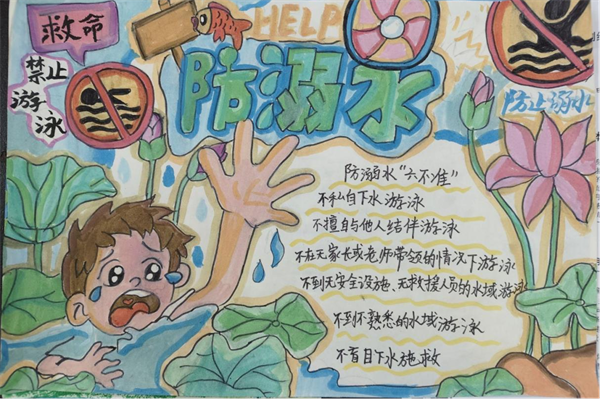 救命
禁止
游泳
HELP
防溺水
防止溺水
防溺水“六不准”
不私自下水游泳
不擅自与他人结伴游泳
不在无家长或老师带领的情况下游泳
不到无安全设施、无救援人员的水域游泳
不到怀熟悉的水域游泳
不盲目下水施救